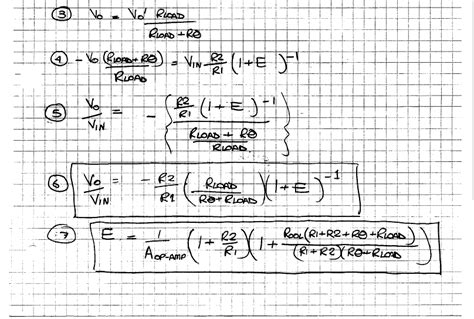 ③ Vo = Vo' RLOAD / (RLOAD + RØ)
④ -Vo (RLOAD + RØ) / RLOAD = VIN R2/R1 (1 + E)^-1
⑤ Vo/VIN = - { R2/R1 (1 + E)^-1 / ((RLOAD + RØ) / RLOAD) }
⑥ Vo/VIN = - R2/R1 (RLOAD / (RØ + RLOAD)) (1 + E)^-1
⑦ E = 1/AOP-AMP (1 + R2/R1) (1 + ROOL(R1 + R2 + RØ + RLOAD) / ((R1 + R2)(RØ + RLOAD)))